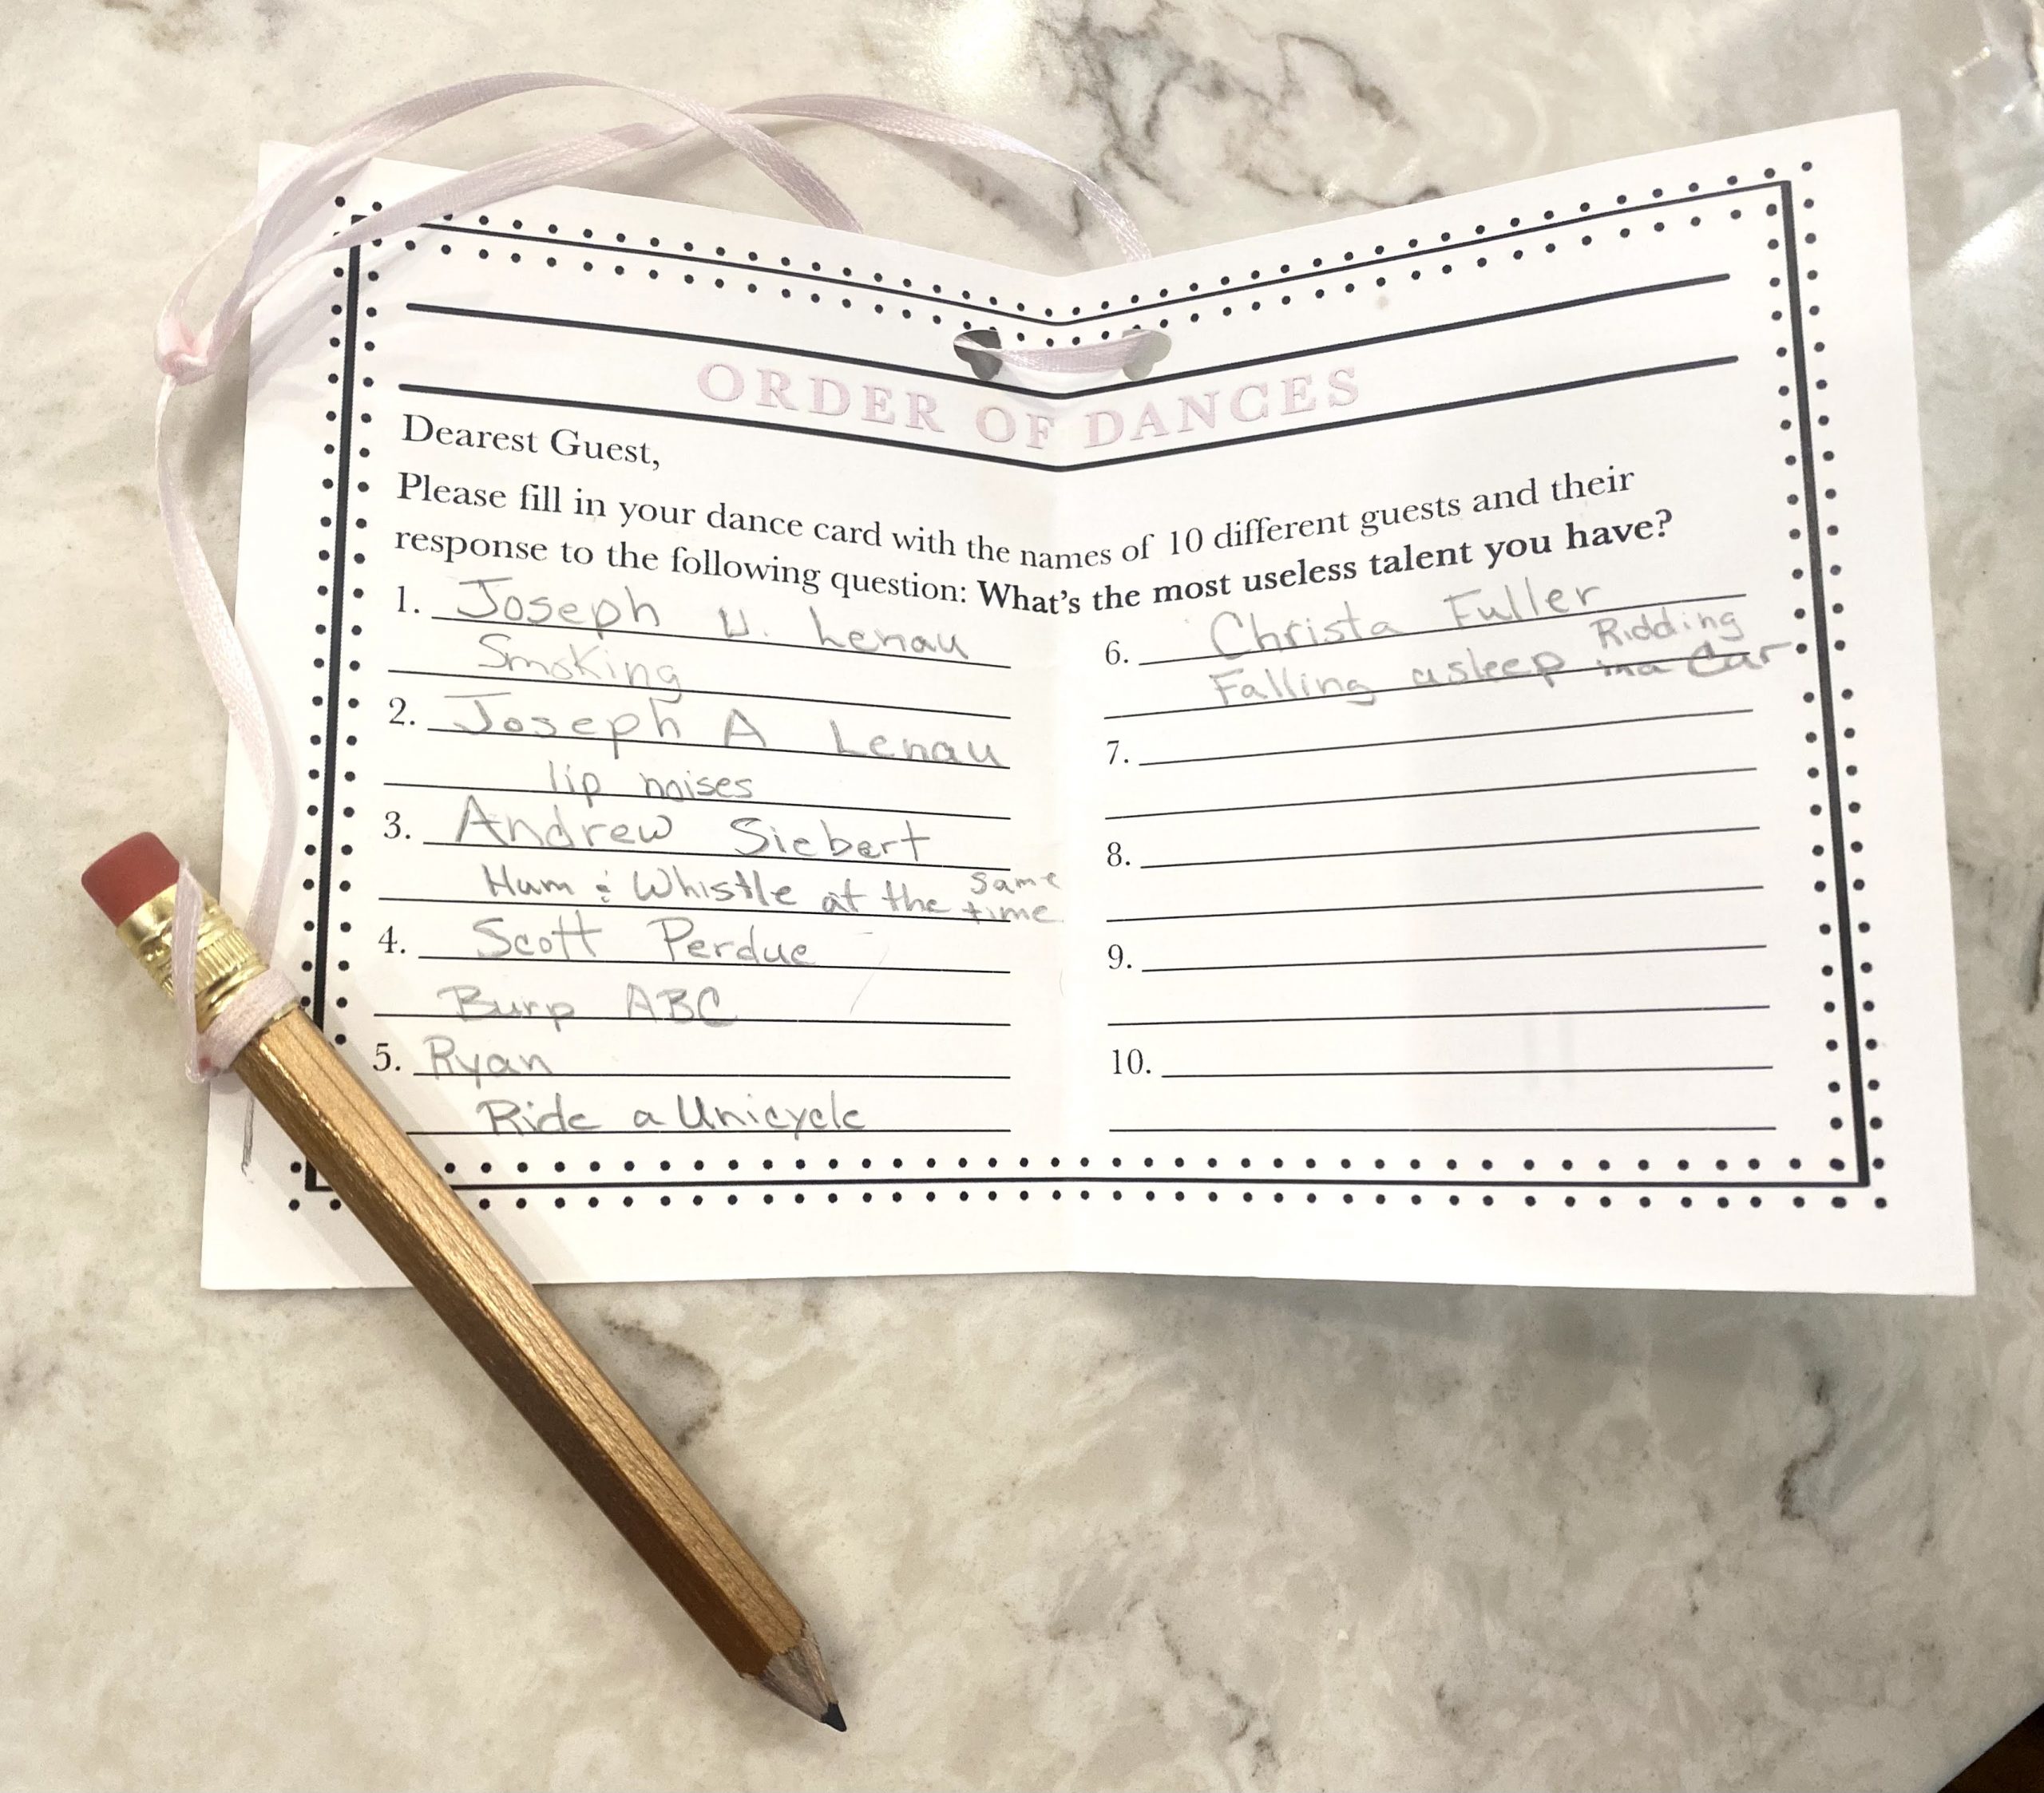 ORDER OF DANCES
Dearest Guest,
Please fill in your dance card with the names of 10 different guests and their
response to the following question: What's the most useless talent you have?
1. Joseph U. Lenau
Smoking
2. Joseph A Lenau
lip noises
3. Andrew Siebert
Hum & Whistle at the same time
4. Scott Perdue
Burp ABC
5. Ryan
Ride a Unicycle
6. Christa Fuller
Falling asleep Ridding in a Car
7.
8.
9.
10.